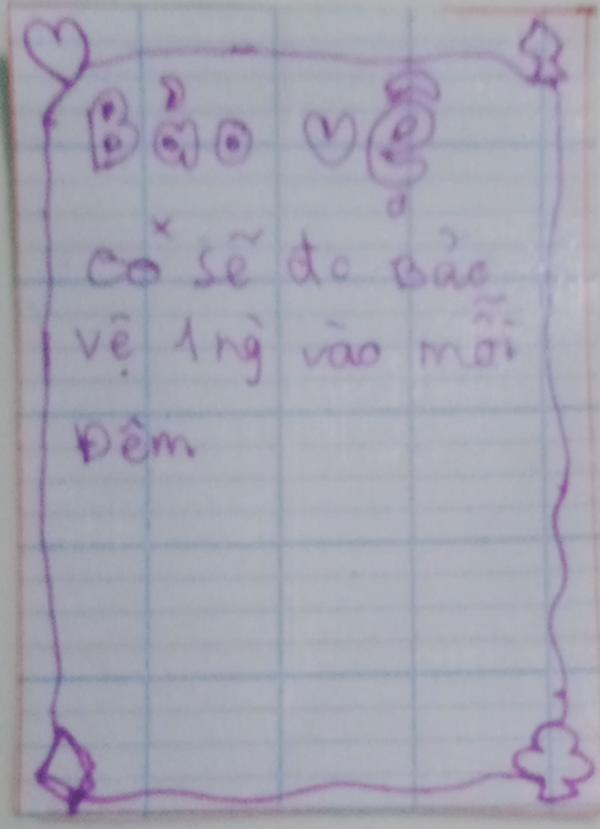 Bảo vệ
Có sẽ đc Bảo
vệ 1 ng vào mỗi
Đêm